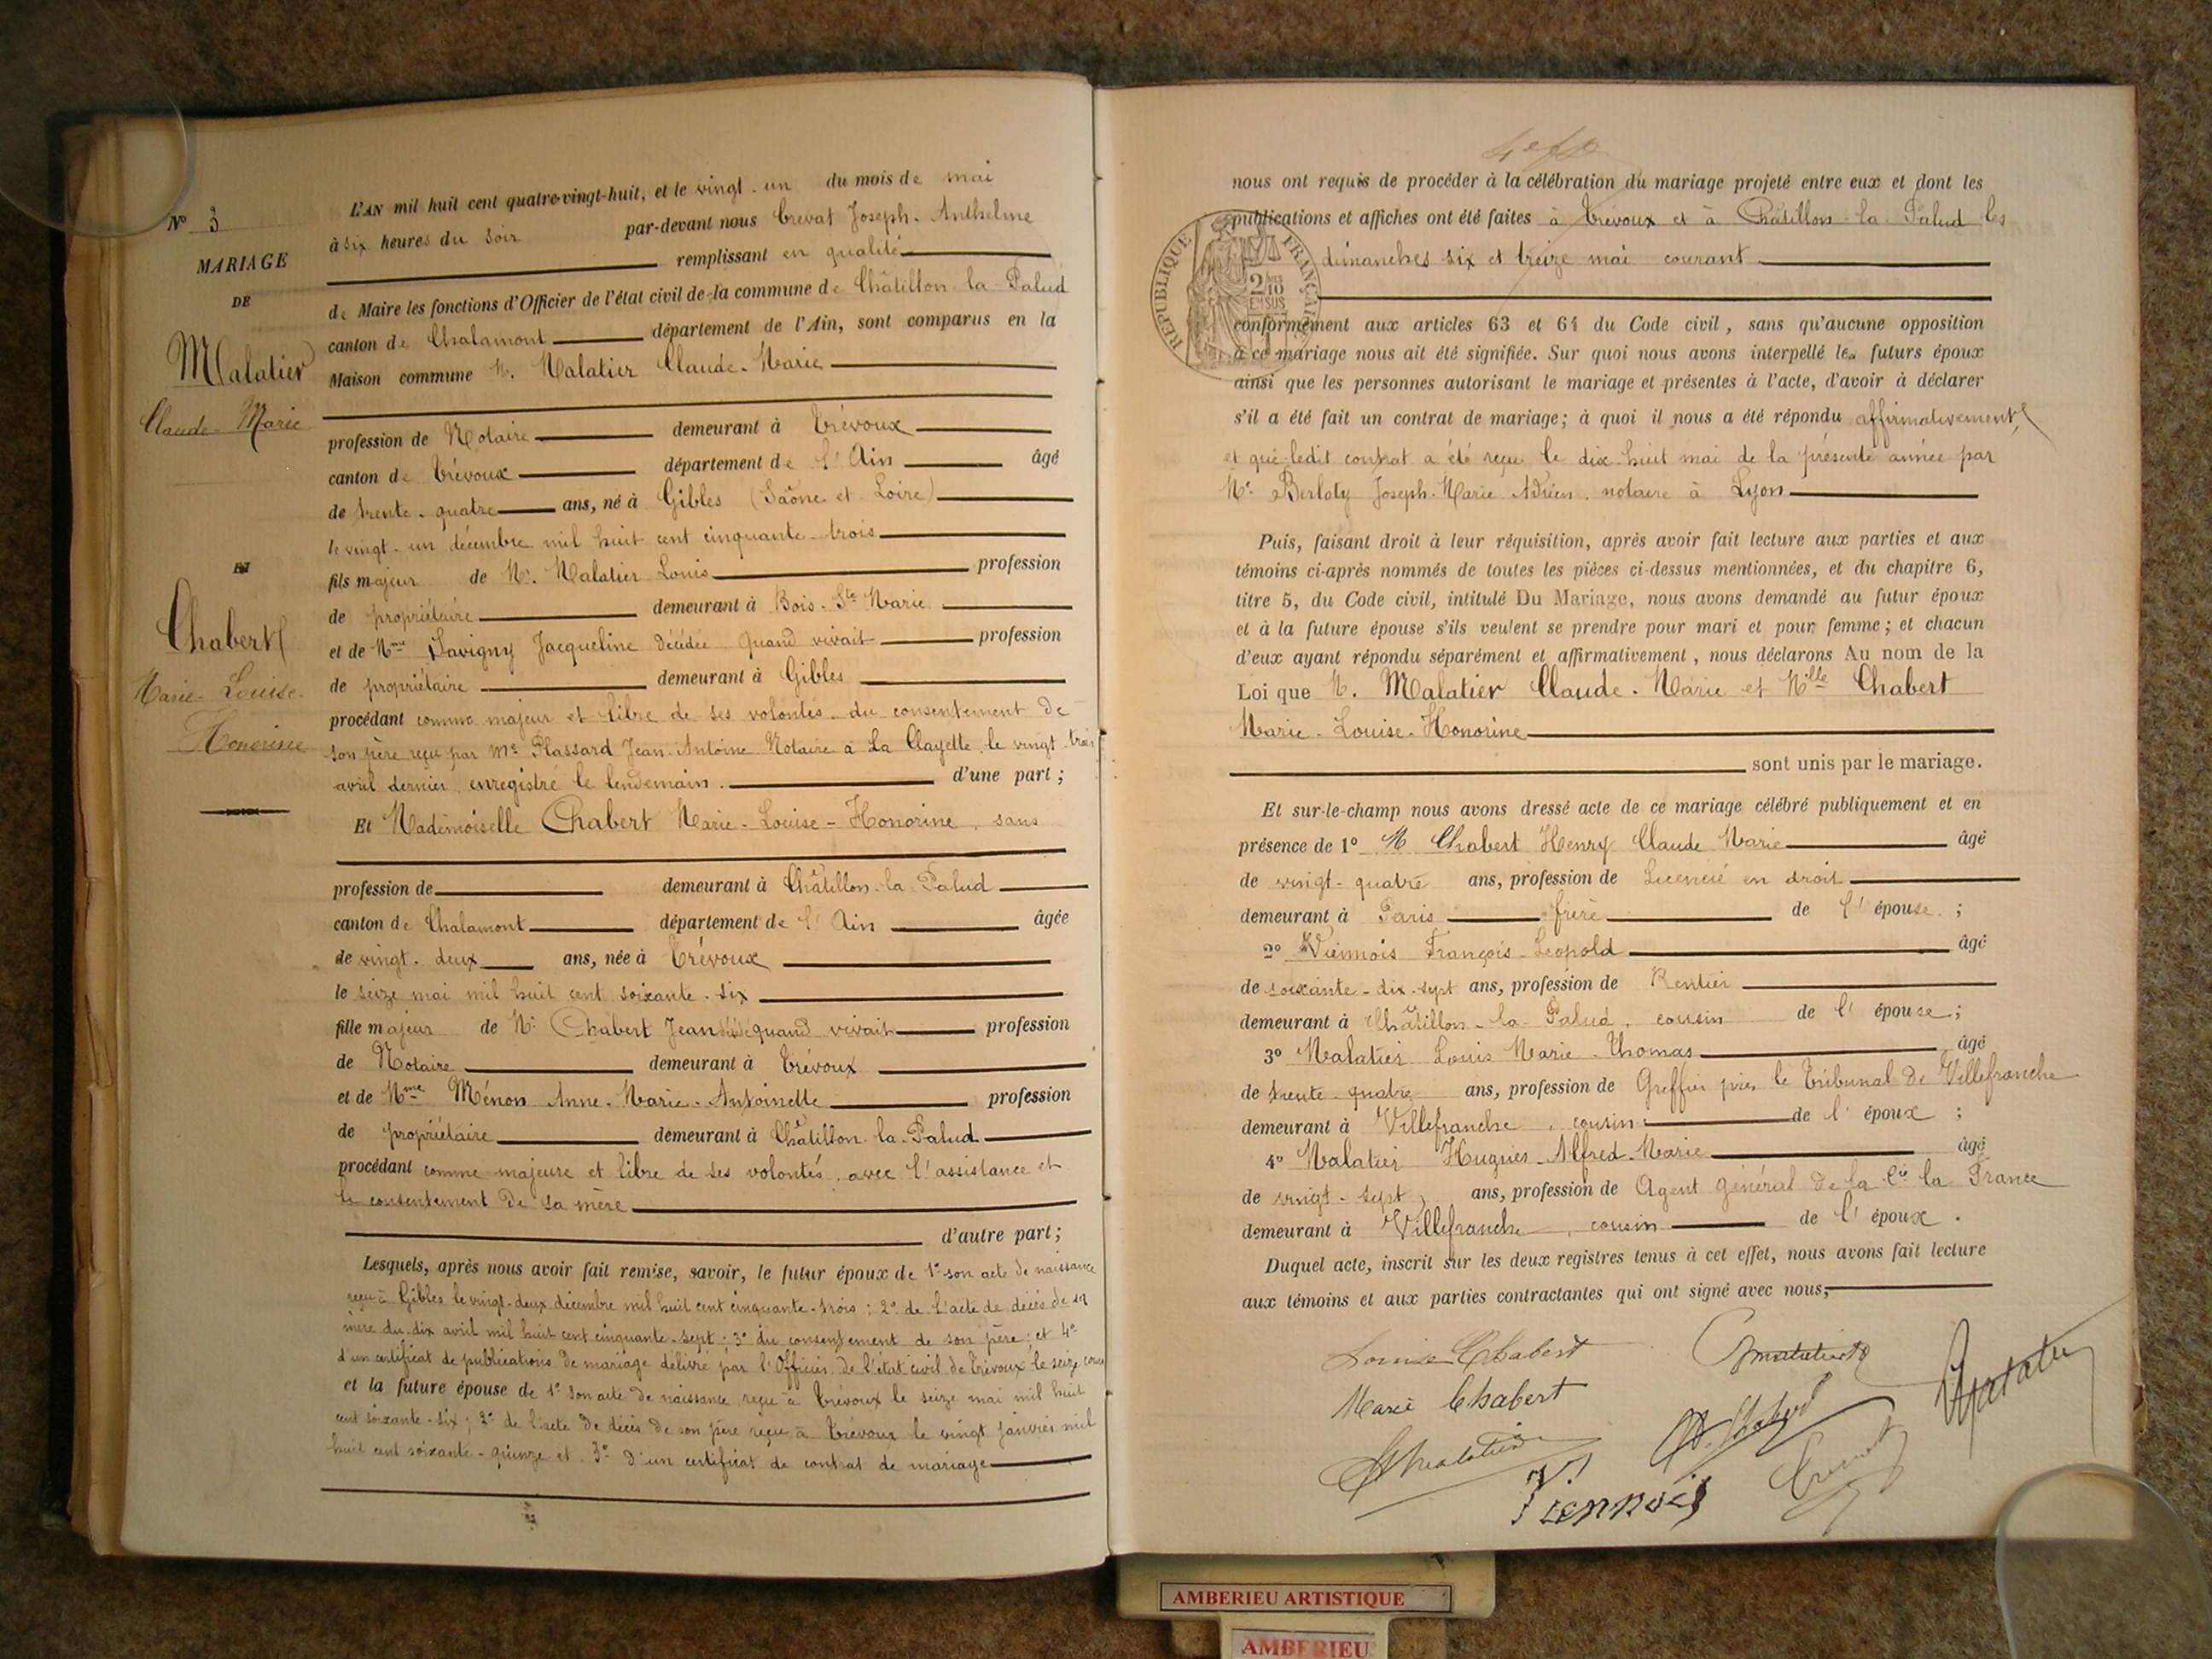 N° 3
MARIAGE
DE
Malatier
Claude-Marie
ET
Chabert
Marie-Louise-
Honorine
L'AN mil huit cent quatre-vingt-huit, et le vingt-un du mois de mai
à six heures du soir par-devant nous Crevat Joseph-Anthelme
remplissant en qualité
de Maire les fonctions d'Officier de l'état civil de la commune de Châtillon-la-Palud
canton de Chalamont département de l'Ain, sont comparus en la
Maison commune M. Malatier Claude-Marie
profession de Notaire demeurant à Trévoux
canton de Trévoux département de l'Ain âgé
de trente-quatre ans, né à Gibles (Saône et Loire)
le vingt-un décembre mil huit cent cinquante-trois
fils majeur de Mr. Malatier Louis profession
de propriétaire demeurant à Bois-Ste Marie
et de Mme Savigny Jacqueline décédée quand vivait profession
de propriétaire demeurant à Gibles
procédant comme majeur et libre de ses volontés du consentement de
son père reçu par Me Plassard Jean-Antoine Notaire à La Clayette le vingt-trois
avril dernier enregistré le lendemain. d'une part ;
Et Mademoiselle Chabert Marie-Louise-Honorine, sans
profession de demeurant à Châtillon-la-Palud
canton de Chalamont département de l'Ain âgée
de vingt-deux ans, née à Trévoux
le seize mai mil huit cent soixante-six
fille majeur de Mr Chabert Jean quand vivait profession
de Notaire demeurant à Trévoux
et de Mme Ménon Anne-Marie-Antoinette profession
de propriétaire demeurant à Châtillon-la-Palud
procédant comme majeure et libre de ses volontés avec l'assistance et
le consentement de sa mère
d'autre part ;
Lesquels, après nous avoir fait remise, savoir, le futur époux de 1° son acte de naissance
reçu à Gibles le vingt-deux décembre mil huit cent cinquante-trois ; 2° de l'acte de décès de sa
mère du dix avril mil huit cent cinquante-sept ; 3° du consentement de son père ; et 4°
d'un certificat de publications de mariage délivré par l'Officier de l'état civil de Trévoux le seize
et la future épouse de 1° son acte de naissance reçu à Trévoux le seize mai mil huit
cent soixante-six ; 2° de l'acte de décès de son père reçu à Trévoux le vingt janvier mil
huit cent soixante-quinze et 3° d'un certificat de contrat de mariage
nous ont requis de procéder à la célébration du mariage projeté entre eux et dont les
publications et affiches ont été faites à Trévoux et à Châtillon-la-Palud les
dimanches six et treize mai courant
REPUBLIQUE FRANÇAISE
2/10
EN SUS
conformément aux articles 63 et 64 du Code civil, sans qu'aucune opposition
à ce mariage nous ait été signifiée. Sur quoi nous avons interpellé les futurs époux
ainsi que les personnes autorisant le mariage et présentes à l'acte, d'avoir à déclarer
s'il a été fait un contrat de mariage ; à quoi il nous a été répondu affirmativement,
et que ledit contrat a été reçu le dix-huit mai de la présente année par
Me Berloty Joseph-Marie Adrien, notaire à Lyon
Puis, faisant droit à leur réquisition, après avoir fait lecture aux parties et aux
témoins ci-après nommés de toutes les pièces ci-dessus mentionnées, et du chapitre 6,
titre 5, du Code civil, intitulé Du Mariage, nous avons demandé au futur époux
et à la future épouse s'ils veulent se prendre pour mari et pour femme ; et chacun
d'eux ayant répondu séparément et affirmativement, nous déclarons Au nom de la
Loi que M. Malatier Claude-Marie et Mlle Chabert
Marie-Louise-Honorine
sont unis par le mariage.
Et sur-le-champ nous avons dressé acte de ce mariage célébré publiquement et en
présence de 1° M Chabert Henry Claude Marie âgé
de vingt-quatre ans, profession de Licencié en droit
demeurant à Paris frère de l'épouse ;
2° Viennois François-Léopold âgé
de soixante-dix-sept ans, profession de Rentier
demeurant à Châtillon-la-Palud, cousin de l'épouse ;
3° Malatier Louis Marie-Thomas âgé
de trente-quatre ans, profession de Greffier près le Tribunal de Villefranche
demeurant à Villefranche, cousin de l'époux ;
4° Malatier Hugues-Alfred-Marie âgé
de vingt-sept ans, profession de Agent général de la Cie la France
demeurant à Villefranche, cousin de l'époux.
Duquel acte, inscrit sur les deux registres tenus à cet effet, nous avons fait lecture
aux témoins et aux parties contractantes qui ont signé avec nous,
Louise Chabert
Malatier
Marie Chabert
H. Chabert
Malatier
Viennois
Crevat
AMBERIEU ARTISTIQUE
AMBERIEU